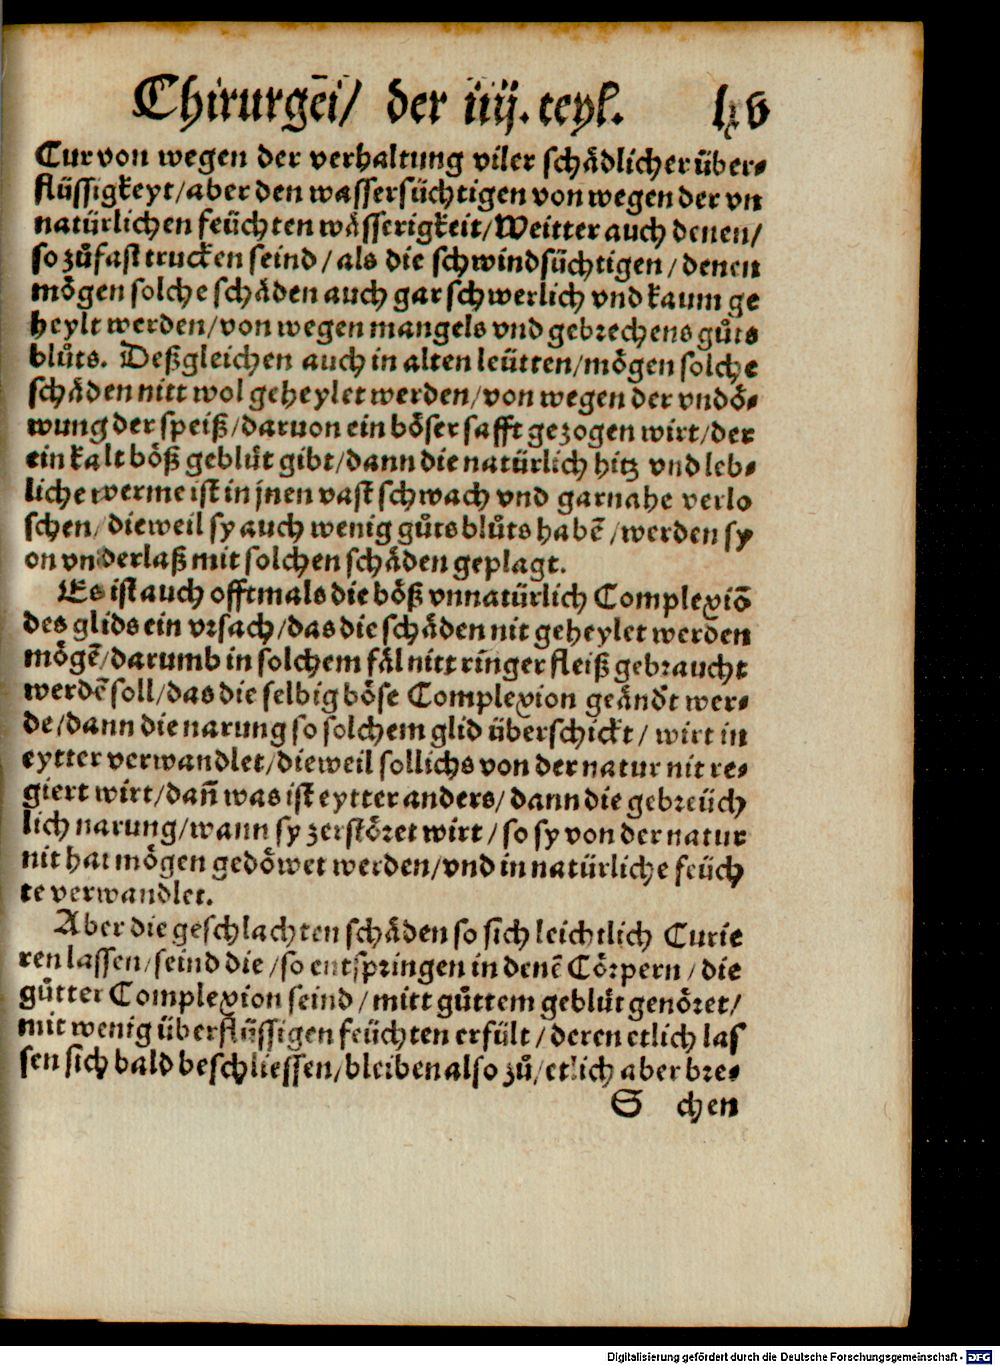 Chirurgēi/ der iiij. teyl. lxv
Cur von wegen der verhaltung viler schädlicher über⸗
flüssigkeyt/aber den wassersüchtigen von wegen der vn
natürlichen feüchten wässerigkeit/Weitter auch denen/
so zůfast trucken seind/als die schwindsüchtigen/denen
mögen solche schäden auch gar schwerlich vnd kaum ge
heylt werden/von wegen mangels vnd gebrechens gůts
blůts. Deßgleichen auch in alten leütten/mögen solche
schäden nitt wol geheylet werden/von wegen der vndö⸗
wung der speiß/daruon ein böser safft gezogen wirt/der
ein kalt böß geblüt gibt/dann die natürlich hitz vnd leb⸗
liche werme ist in jnen vast schwach vnd gar nahe verlo
schen/dieweil sy auch wenig gůts blůts habē/werden sy
on vnderlaß mit solchen schäden geplagt.
Es ist auch offtmals die böß vnnatürlich Complexiō
des glids ein vrsach/das die schäden nit geheylet werden
mögē/darumb in solchem fäl nitt ringer fleiß gebraucht
werdē soll/das die selbig böse Complexion geändt wer⸗
de/dann die narung so solchem glid überschickt/wirt in
eytter verwandlet/dieweil sollichs von der natur nit re⸗
giert wirt/dañ was ist eytter anders/dann die gebreüch
lich narung/wann sy zerstöret wirt/so sy von der natur
nit hat mögen gedöwet werden/vnd in natürliche feüch
te verwandlet.
Aber die geschlachten schäden so sich leichtlich Curie
ren lassen/seind die/so entspringen in denē Cörpern/die
gůtter Complexion seind/mitt gůttem geblüt genöret/
mit wenig überflüssigen feüchten erfült/deren etlich las
sen sich bald beschliessen/bleiben also zů/etlich aber bre⸗
S chen
Digitalisierung gefördert durch die Deutsche Forschungsgemeinschaft - DFG